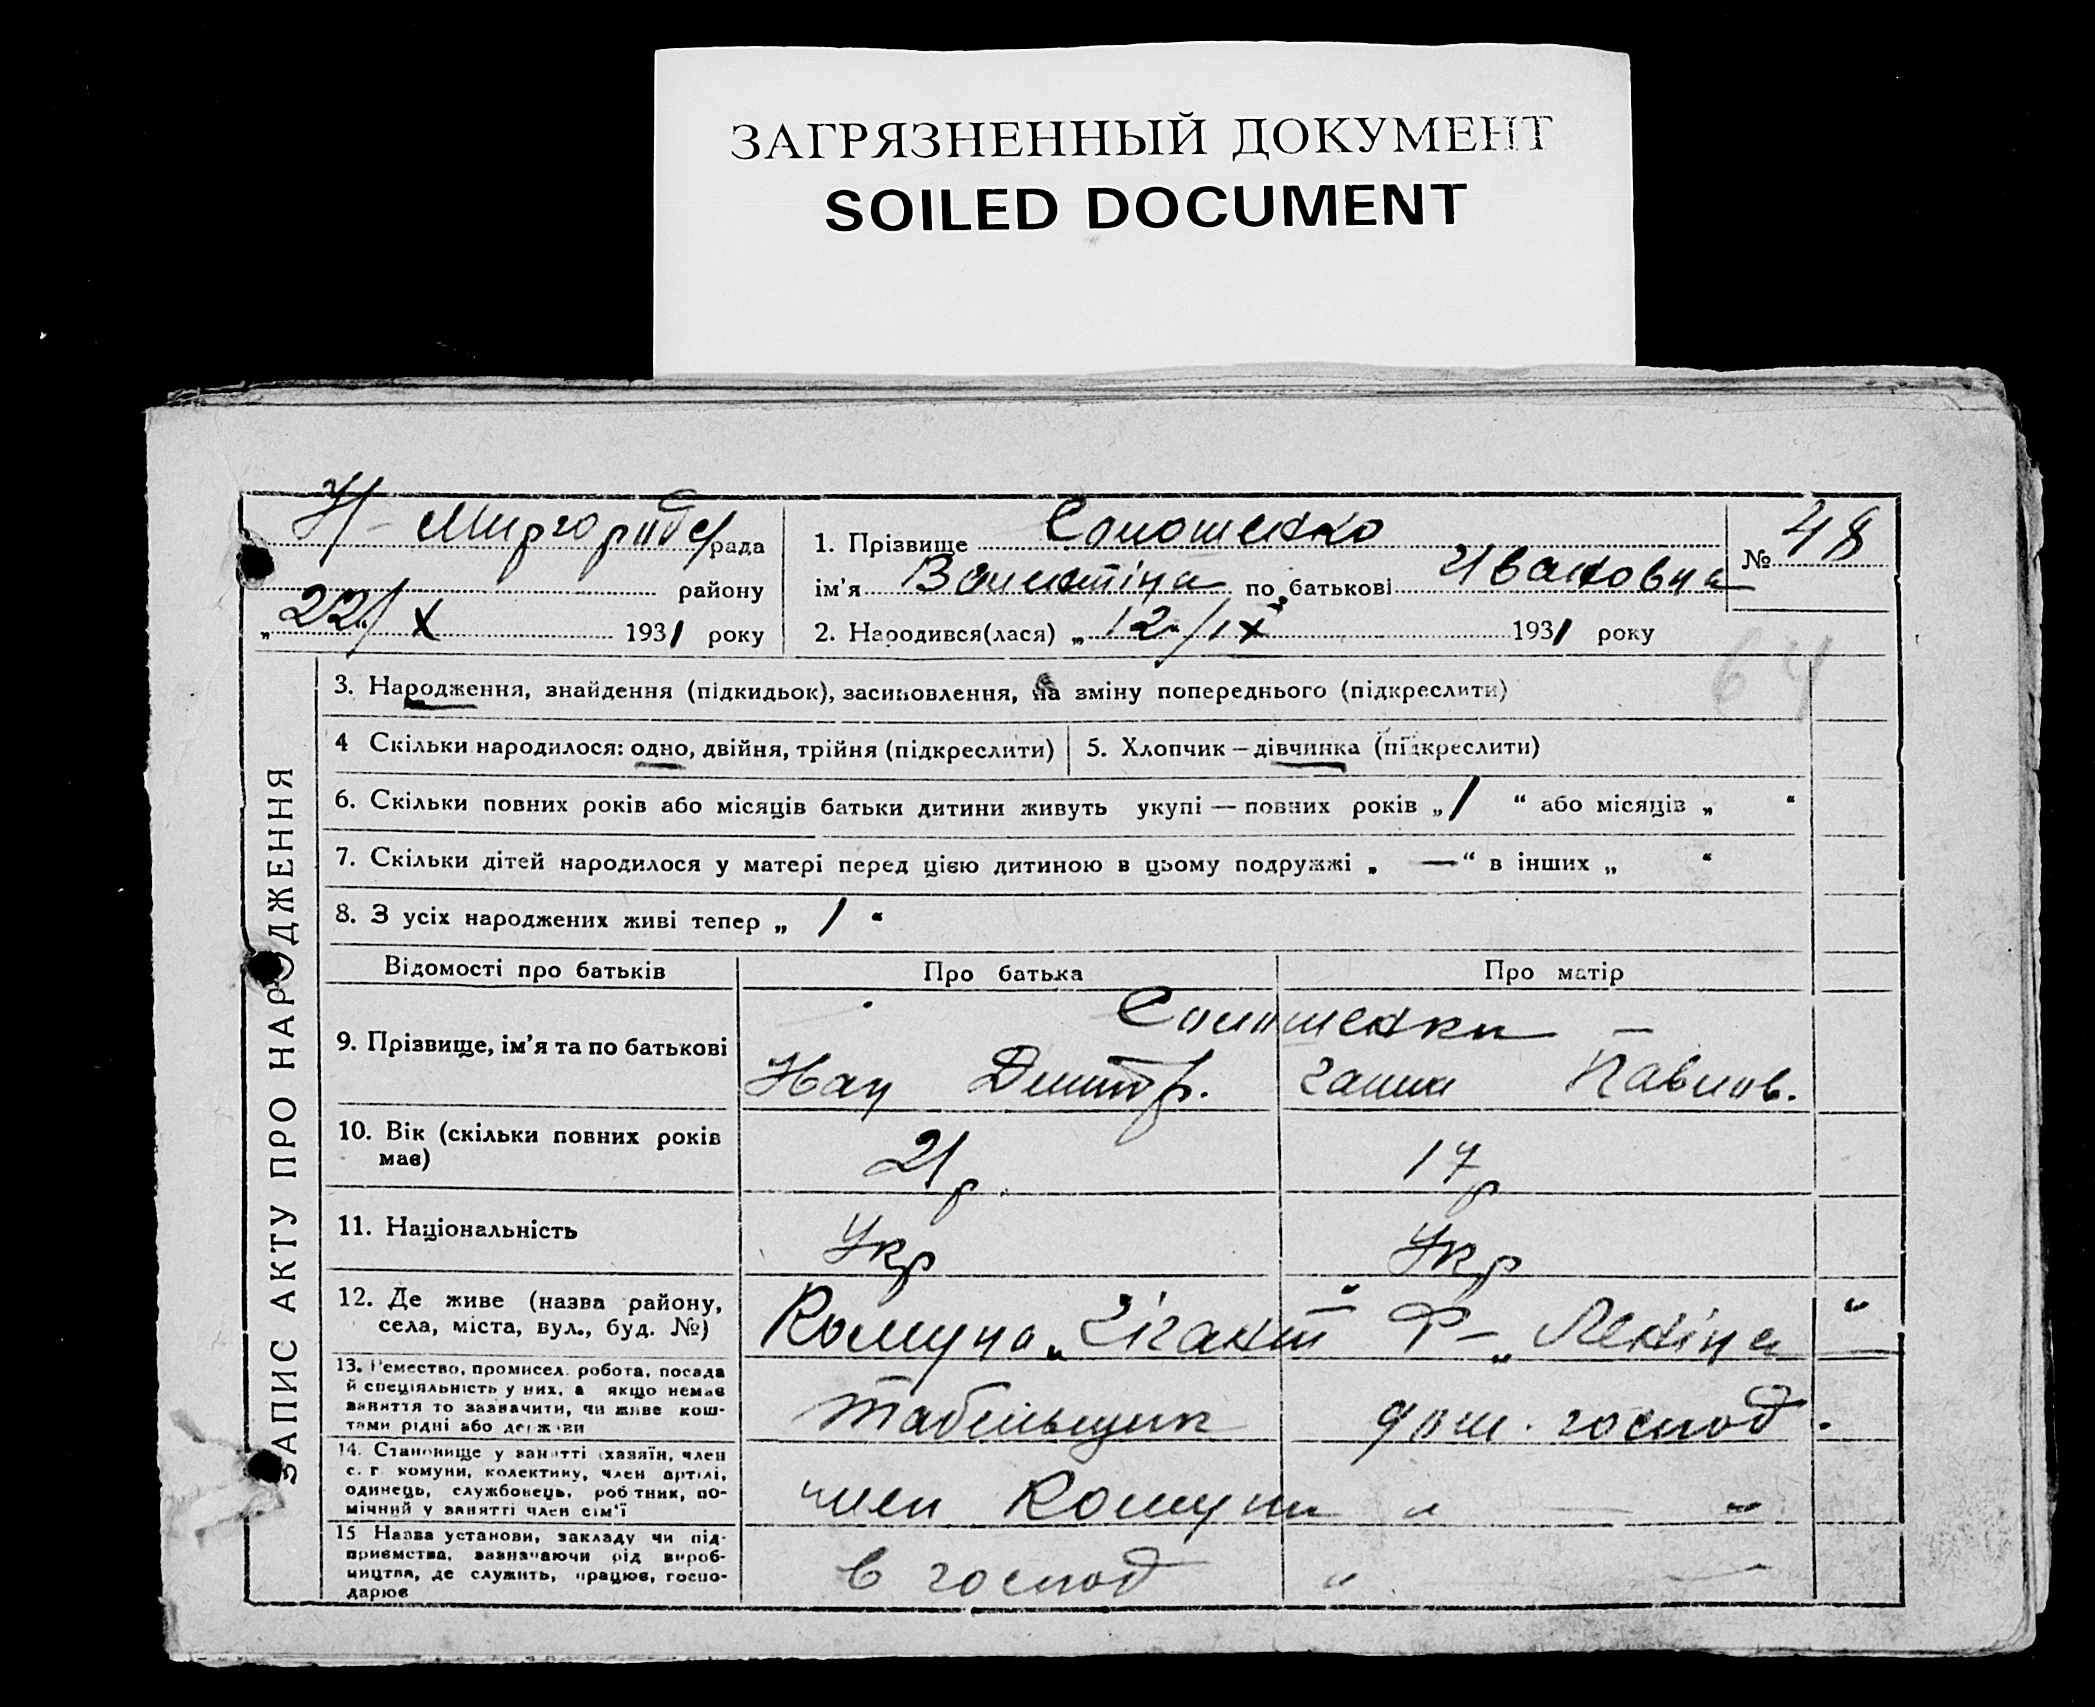 ЗАГРЯЗНЕННЫЙ ДОКУМЕНТ
SOILED DOCUMENT
Н-Миргородс рада
району
„22/X 1931 року
1. Прізвище Солошенко
ім'я Валентіна по батькові Ивановна
№ 48
2. Народився(лася) „12/IX 1931 року
64
ЗАПИС АКТУ ПРО НАРОДЖЕННЯ
3. Народження, знайдення (підкидьок), засиновлення, на зміну попереднього (підкреслити)
4 Скільки народилося: одно, двійня, трійня (підкреслити)
5. Хлопчик – дівчинка (підкреслити)
6. Скільки повних років або місяців батьки дитини живуть укупі — повних років „ 1 “ або місяців „ “
7. Скільки дітей народилося у матері перед цією дитиною в цьому подружжі „ — “ в інших „ “
8. З усіх народжених живі тепер „ 1 “
Відомості про батьків
Про батька
Про матір
9. Прізвище, ім'я та по батькові
Солошенки —
Иван Дмитр.
Ганна Павлов.
10. Вік (скільки повних років
має)
21 р.
17 р
11. Національність
Укр
Укр
12. Де живе (назва району,
села, міста, вул., буд. №)
Комуна „Гігант“ Ф- „Леніна “
13. Ремество, промисел, робота, посада
й спеціяльність у них, а якщо немає
заняття то зазначити, чи живе кош-
тами рідні або держави
табельщик
дом. господ.
14. Становище у занятті (хазяїн, член
с. г. комуни, колективу, член артілі,
одинець, службовець, робітник, по-
мічний у занятті член сім'ї
член Комуни
„ — „
15 Назва установи, закладу чи під-
приємства, зазначаючи рід вироб-
ництва, де служить, працює, госпо-
дарює
в господ
„ — „